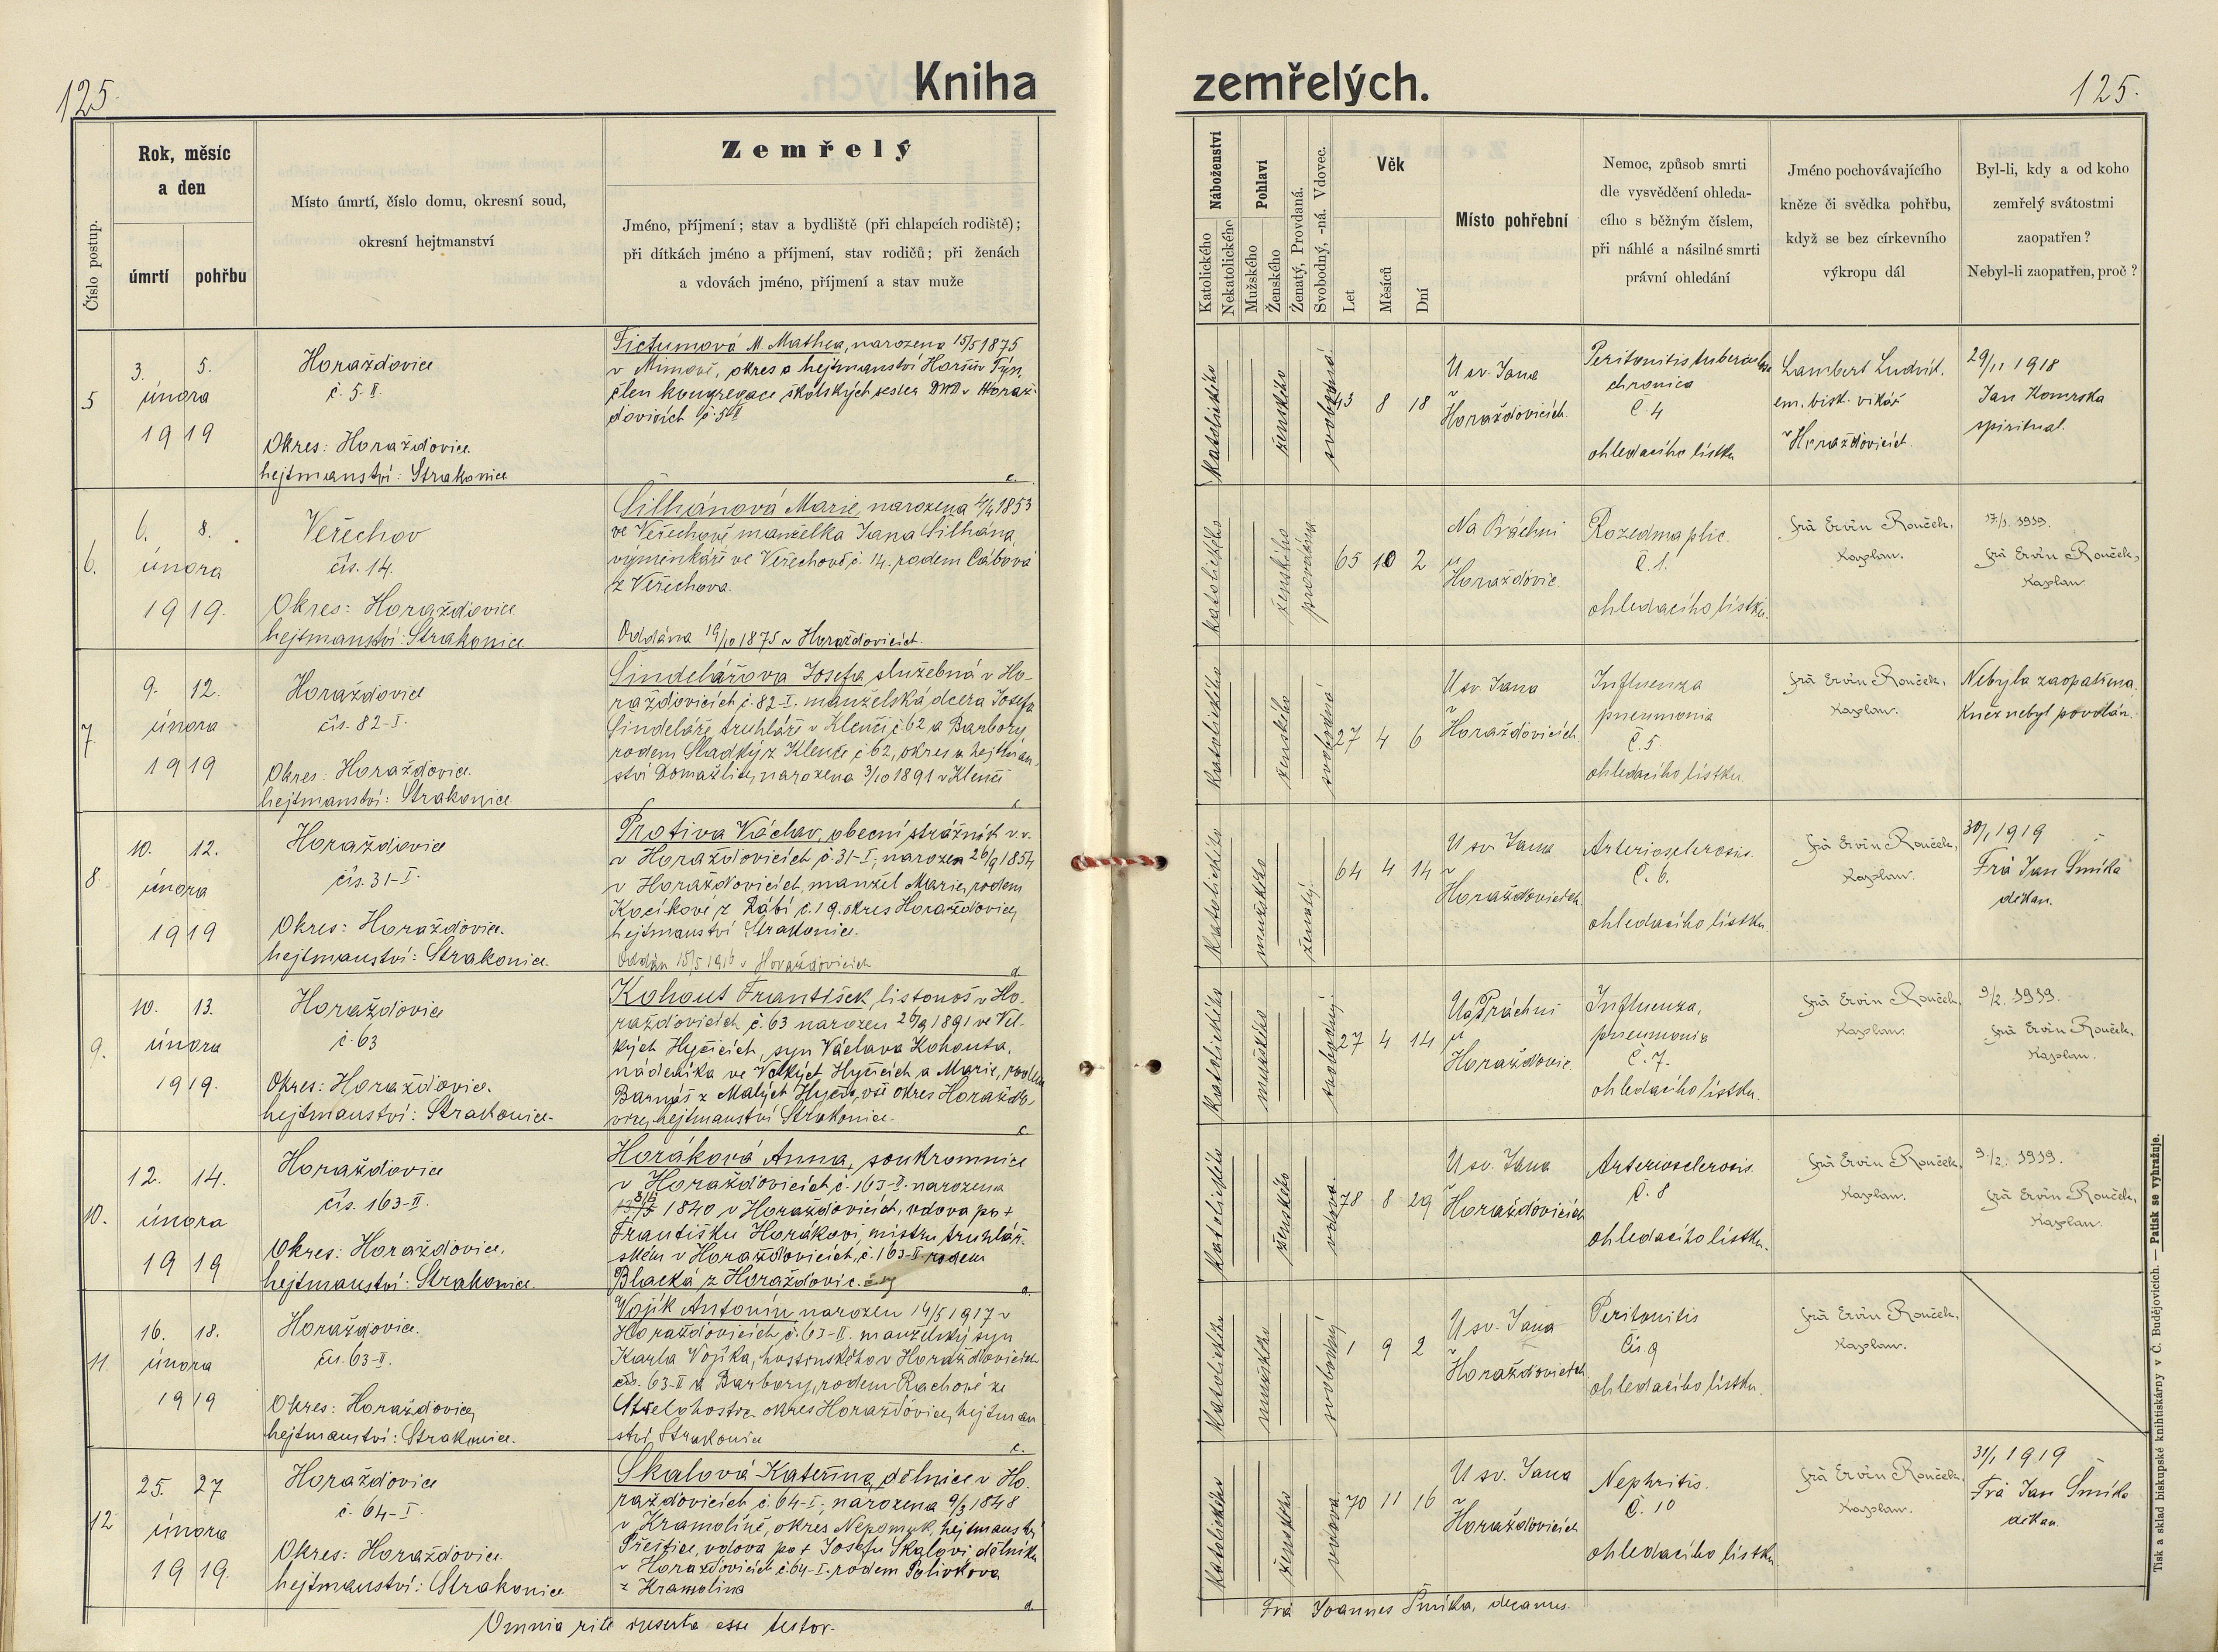 125.
Kniha
zemřelých.
125.
Číslo postup.
Rok, měsíc
a den
úmrtí
pohřbu
Místo úmrtí, číslo domu, okresní soud,
okresní hejtmanství
Zemřelý
Jméno, příjmení; stav a bydliště (při chlapcích rodiště);
při dítkách jméno a příjmení, stav rodičů; při ženách
a vdovách jméno, příjmení a stav muže
Náboženství
Katolického
Nekatolického
Pohlaví
Mužského
Ženského
Ženatý, Provdaná.
Svobodný, -ná. Vdovec.
Věk
Let
Měsíců
Dní
Místo pohřební
Nemoc, způsob smrti
dle vysvědčení ohleda-
cího s běžným číslem,
při náhlé a násilné smrti
právní ohledání
Jméno pochovávajícího
kněze či svědka pohřbu,
když se bez církevního
výkropu dál
Byl-li, kdy a od koho
zemřelý svátostmi
zaopatřen?
Nebyl-li zaopatřen, proč?
5
3. 5.
února
1919
Horažďovice
č. 5-II.
Okres: Horažďovice.
hejtmanství: Strakonice
Fictumová M. Mathea, narozena 15/5 1875
v Mimově, okres a hejtmanství Horšův Týn,
člen kongregace školských sester DND v Horaž-
ďovicích č. 5-II
c.
katolického
ženského
svobodná
43 8 18
U sv. Jana
v
Horažďovicích.
Peritonitis tuberculosa
chronica
Č. 4
ohledacího lístku
Lambert Ludvík.
em. bisk. vikář
v Horažďovicích.
29/11 1918
Jan Komrska
spiritual.
6.
6. 8.
února
1919.
Veřechov
čís. 14.
Okres: Horažďovice
hejtmanství: Strakonice
Šilhánová Marie, narozena 4/4 1853
ve Veřechově manželka Jana Šilhána,
výměnkáře ve Veřechově č. 14. rodem Cábová
z Veřechova.
Oddána 19/10 1875 v Horažďovicích.
katolického
ženského
provdána
65 10 2
Na Práchni
u
Horažďovic.
Rozedma plic.
Č. 1.
ohledacího lístku.
frà Ervín Rouček,
kaplan.
17/1. 1919.
frà Ervín Rouček,
kaplan
7
9. 12.
února
1919
Horažďovice
čís. 82-I.
Okres: Horažďovice.
hejtmanství: Strakonice.
Šindelářova Josefa služebná v Ho-
ražďovicích č. 82-I. manželská dcera Josefa
Šindeláře, truhláře v Klenčí č. 62 a Barbory,
rodem Sladký z Klenče č. 62, okres a hejtman-
ství Domažlice, narozena 3/10 1891 v Klenčí
c.
katolického
ženského
svobodná
27 4 6
U sv. Jana
v
Horažďovicích.
Influenza
pneumonia
Č. 5.
ohledacího lístku.
frà Ervín Rouček,
kaplan.
Nebyla zaopatřena.
Kněz nebyl povolán.
8.
10. 12.
února
1919
Horažďovice
čís. 31-I.
Okres: Horažďovice.
hejtmanství: Strakonice.
Protiva Václav, obecní strážník v. v.
v Horažďovicích č. 31-I; narozen 26/9 1854
v Horažďovicích, manžel Marie, rodem
Kocíkové z Rábí č. 19. okres Horažďovice,
hejtmanství Strakonice.
Oddán 15/5 1916 v Horažďovicích
d.
katolického
mužského
ženatý.
64 4 14
U sv. Jana
v
Horažďovicích.
Arteriosclerosis.
Č. 6.
ohledacího lístku.
frà Ervín Rouček,
kaplan.
30/1 1919
Frà Jan Šmíka
děkan.
9.
10. 13.
února
1919.
Horažďovice
č. 63
Okres: Horažďovice.
hejtmanství: Strakonice.
Kohout František, listonoš v Ho-
ražďovicích č. 63 narozen 26/9 1891 ve Vel-
kých Hyčicích, syn Václava Kohouta,
nádeníka ve Velkých Hyčicích a Marie, rodem
Barnáš z Malých Hyčic, vše okres Horažďo-
vice, hejtmanství Strakonice.
c.
katolického
mužského
svobodný.
27 4 14
Na Práchni
u
Horažďovic.
Influenza,
pneumonia
Č. 7.
ohledacího lístku.
frà Ervín Rouček,
kaplan.
9/2. 1919.
frà Ervín Rouček,
kaplan.
10.
12. 14.
února
1919
Horažďovice
čís. 163-II.
Okres: Horažďovice.
hejtmanství: Strakonice.
Horáková Anna, soukromnice
v Horažďovicích č. 163-II. narozena
1840 v Horažďovicích, vdova po +
Františku Horákovi, mistru truhlář-
ském v Horažďovicích, č. 163-II rodem
Blacká z Horažďovic.
a.
katolického
ženského
vdova.
78 8 29
U sv. Jana
v
Horažďovicích
Arteriosclerosis.
Č. 8
ohledacího lístku.
frà Ervín Rouček,
kaplan.
9./2. 1919.
frà Ervín Rouček,
kaplan.
11.
16. 18.
února
1919
Horažďovice.
čís. 63-II.
Okres: Horažďovice,
hejtmanství: Strakonice.
Vojík Antonín narozen 14/5 1917 v
Horažďovicích č. 63-II. manželský syn
Karla Vojíka, hostinského v Horažďovicích
čís. 63-II a Barbory, rodem Rachové ze
Střelohostic okres Horažďovice, hejtman
ství Strakonice
c.
katolického
mužského
svobodný
1 9 2
U sv. Jana
v
Horažďovicích.
Peritonitis
Čís 9
ohledacího lístku.
frà Ervín Rouček,
kaplan.
12
25. 27
února
1919.
Horažďovice
č. 64-I.
Okres: Horažďovice.
hejtmanství: Strakonice
Skalová Kateřina, dělnice v Ho-
ražďovicích č. 64-I; narozena 9/3 1848
v Kramolíně, okres Nepomuk, hejtmanství
Přeštice, vdova po + Josefu Skalovi dělníku
v Horažďovicích č. 64-I. rodem Polívkova
z Kramolína
d.
katolického
ženského
vdova
70 11 16
U sv. Jana
v
Horažďovicích
Nephritis.
Č. 10
ohledacího lístku
frà Ervín Rouček,
kaplan.
31/1 1919
Frà Jan Šmíka
děkan
Omnia rite inserta esse testor.
Frà Joannes Šmíka, decanus.
Tisk a sklad biskupské knihtiskárny v Č. Budějovicích. — Patisk se vyhražuje.